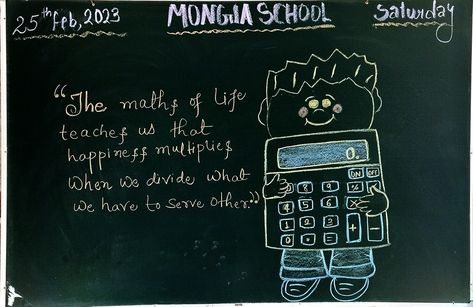 25th Feb, 2023
MONGIA SCHOOL
Saturday
"The maths of Life
teaches us that
happiness multiplies
when we divide what
we have to serve other."
0.
ON OFF
7 8 9 %
4 5 6 ×
1 2 3
0 • = + -